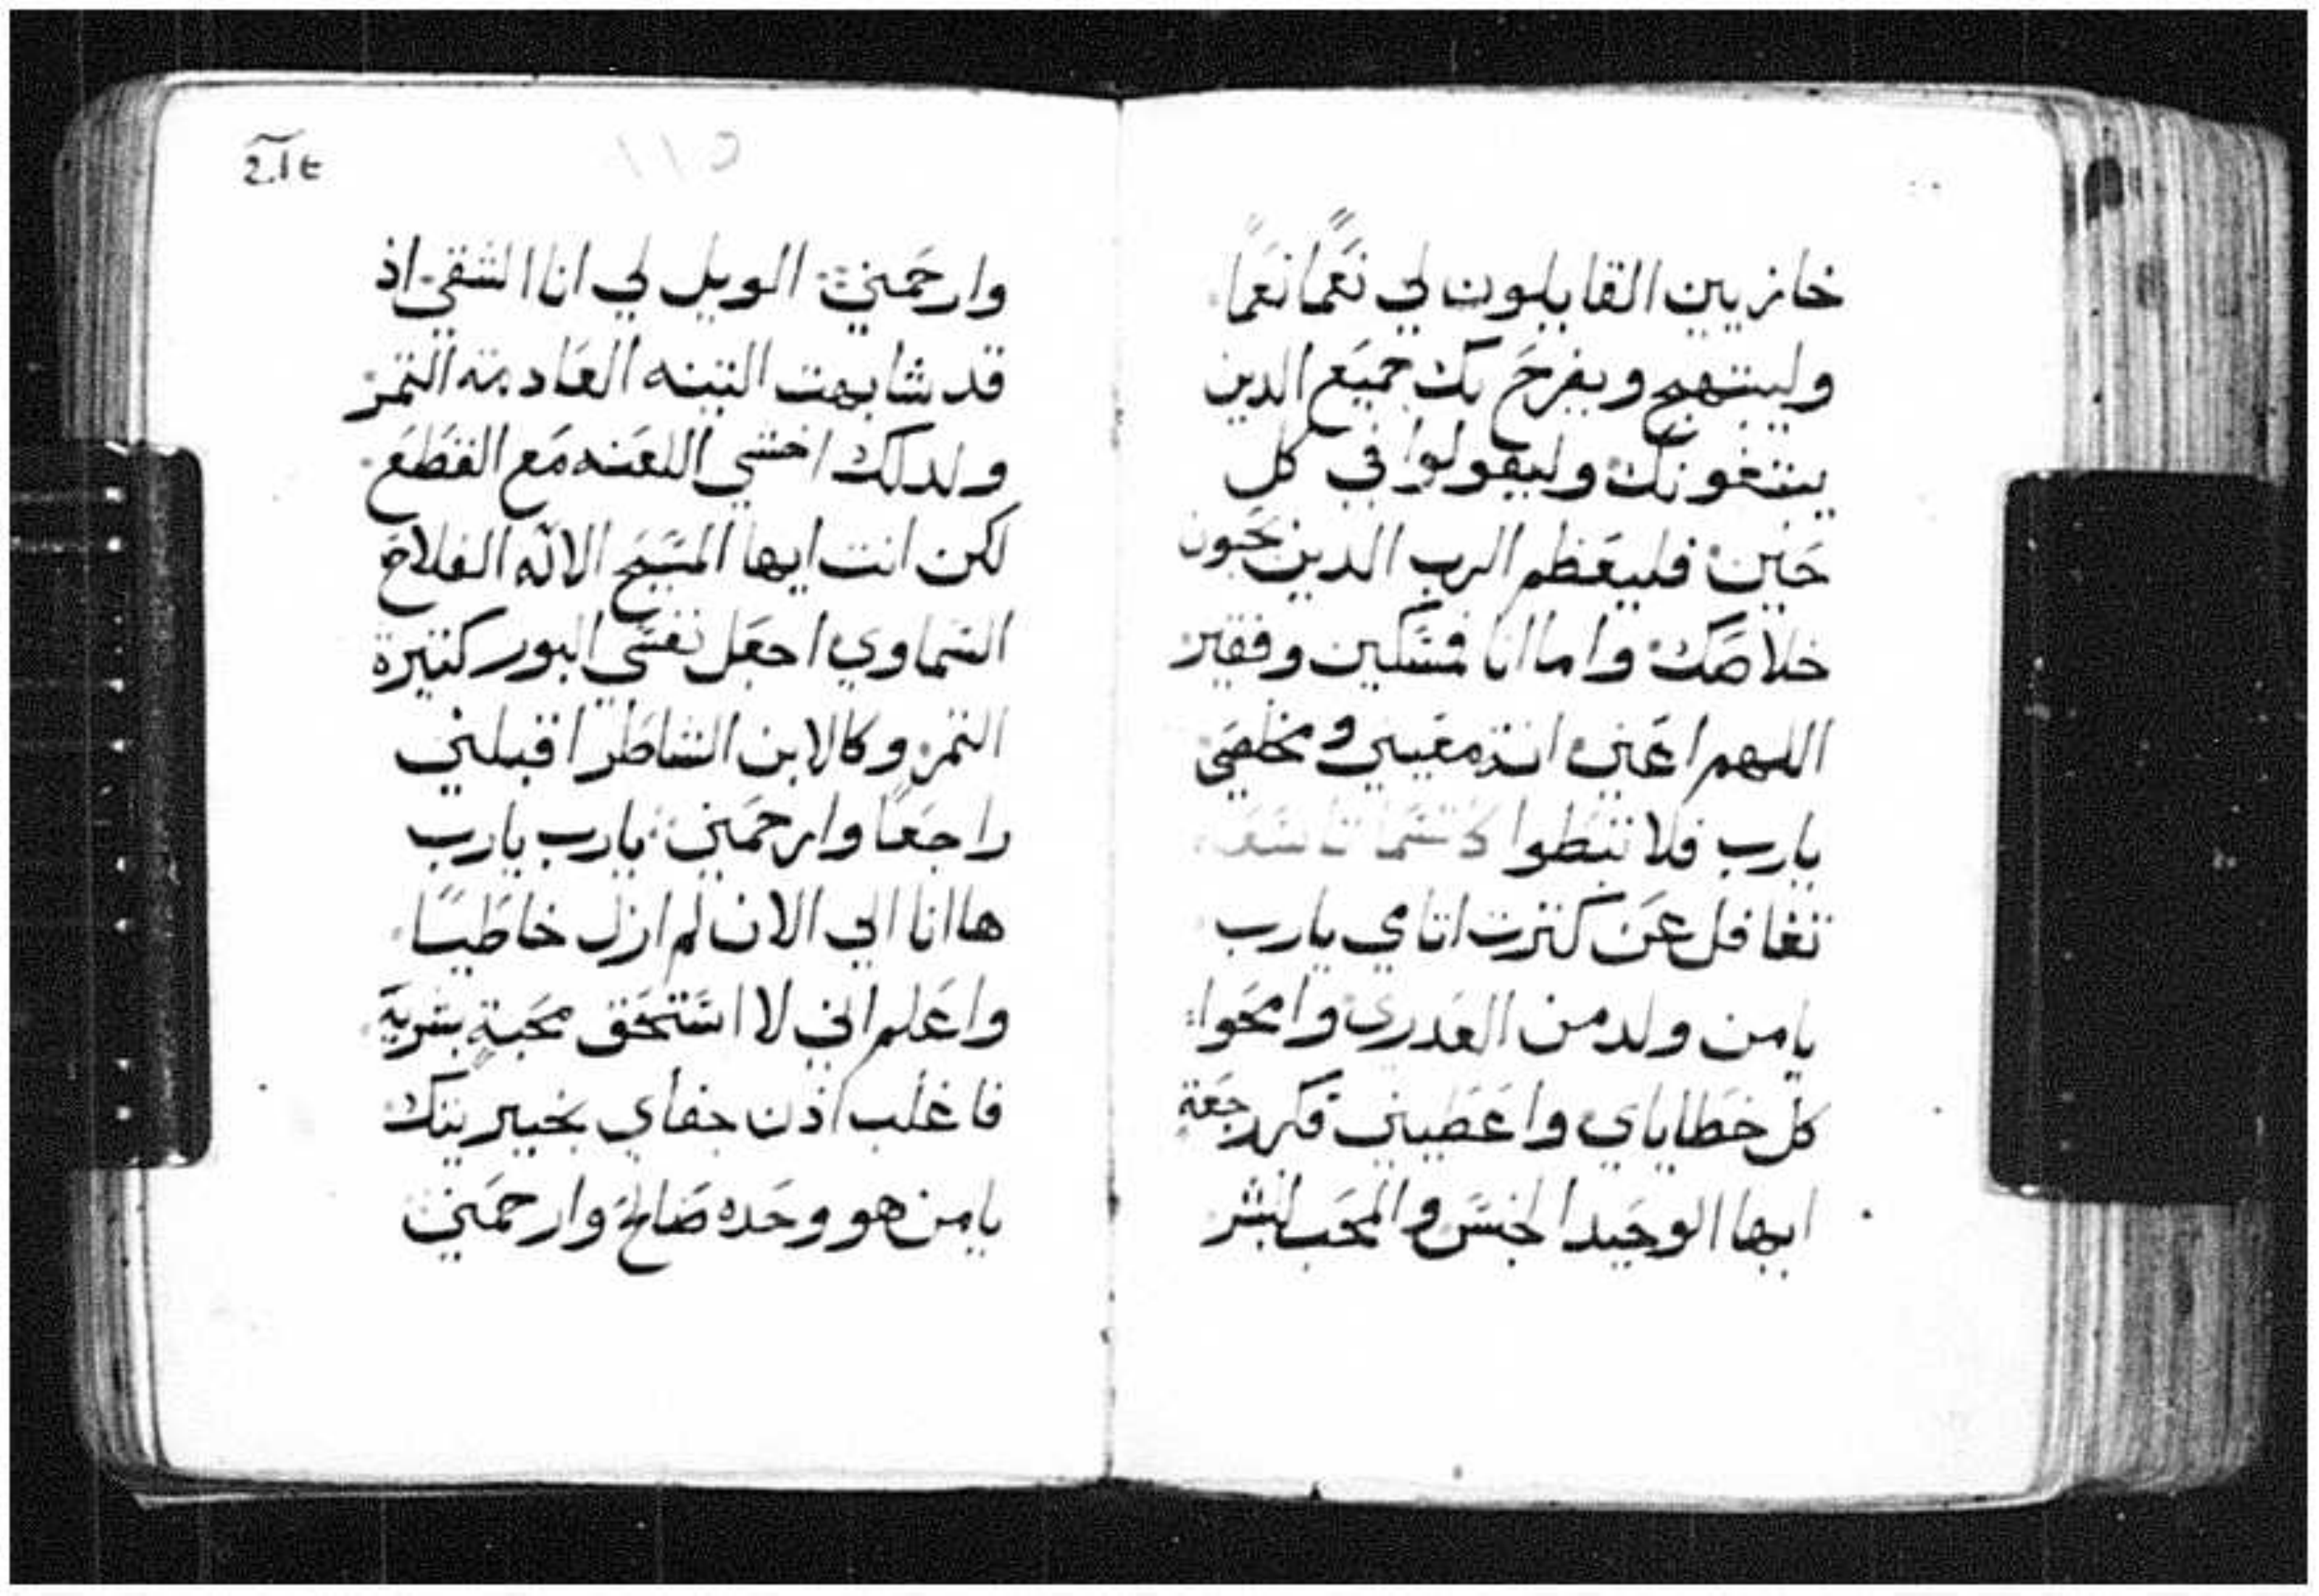 خازيين القايلون لي نَعَمًا نَعَمًا
وليبتهج ويفرح بك جميع الدين
يبتغونك وليقولوا في كل
حَين فليعَظم الرب الدين يحبون
خلاصَك واما انا فمسَكين وفقير
اللهم اعَني انت معَيني ومخلصَي
يارب فلا تبطوا
تغافل عَن كترت اتامي يارب
يامن ولد من العَدري وامحَوا
كل خطاياي واعَطيني فكر رجعَة
ايها الوحَيد الجنسَ والمحَب البشر
211
وارحَمني الويل لي انا الشقي اذ
قد شابهت التينه العَادمة التمر
ولدلك اخشي اللعَنه مَع القطَع
لكن انت ايها المسَيح الالاه الفلاح
السَماوي اجعَل نفسَي البور كتيرة
التمر وكالابن الشاطر اقبلني
راجعًا وارحمَني يارب يارب
ها انا الي الان لم ازل خاطيًا
واعَلم اني لا استحَق محَبةٍ بشرية
فاغلب اذن جفاي بخيريتك
يا من هو وحَده صَالح وارحمَني